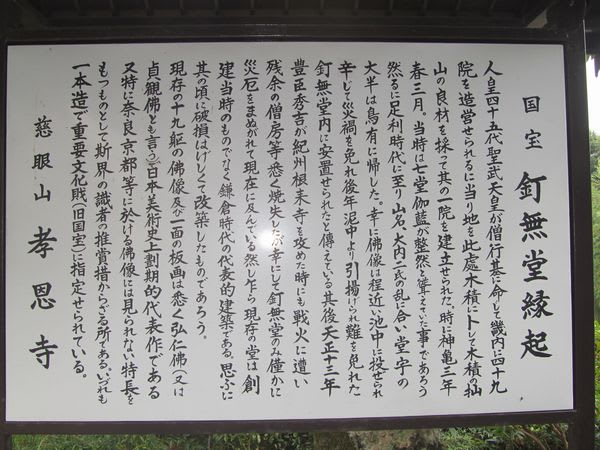 国宝 釘無堂縁起
人皇四十五代聖武天皇が僧行基に命じて畿内に四十九
院を造営せられるに当り地を此處木積に卜して木積の杣
山の良材を採って其の一院を建立せられた。時に神亀三年
春三月。当時は七堂伽藍が整然と聳えていた事であろう
然るに足利時代に至り山名、大内二氏の乱に合い堂宇の
大半は烏有に帰した。幸に佛像は程近い池中に投ぜられ
辛じて災禍を免れ後年泥中より引揚げられ難を免れた
釘無堂内に安置せられたと傳えている其後天正十三年
豊臣秀吉が紀州根来寺を攻めた時にも戦火に遭い
残余の僧房等悉く焼失したが幸にして釘無堂のみ僅かに
災厄をまぬがれて現在に及んでいる然し乍ら現存の堂は創
建当時のものでなく鎌倉時代の代表的建築である。思ふに
其の頃に破損はげしくて改築したものであろう。
現存の十九躯の佛像及び一面の板画は悉く弘仁佛(又は
貞観佛とも言う)日本美術史上劃期的代表作である
又特に奈良京都等に於ける佛像には見られない特長を
もつものとして斯界の識者の推賞措からざる所である。いづれも
一本造で重要文化財(旧国宝)に指定せられている。
慈眼山 孝恩寺